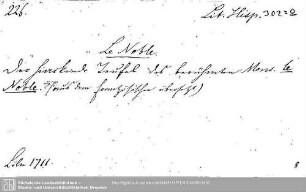 226.
Lit. Hisp. 302
Le Noble.
Der hinckende Teufel des berühmten Mons. le
Noble. (aus dem Frantzösischen übersetzt)
1711.
8
Sächsische Landesbibliothek -
Staats- und Universitätsbibliothek Dresden